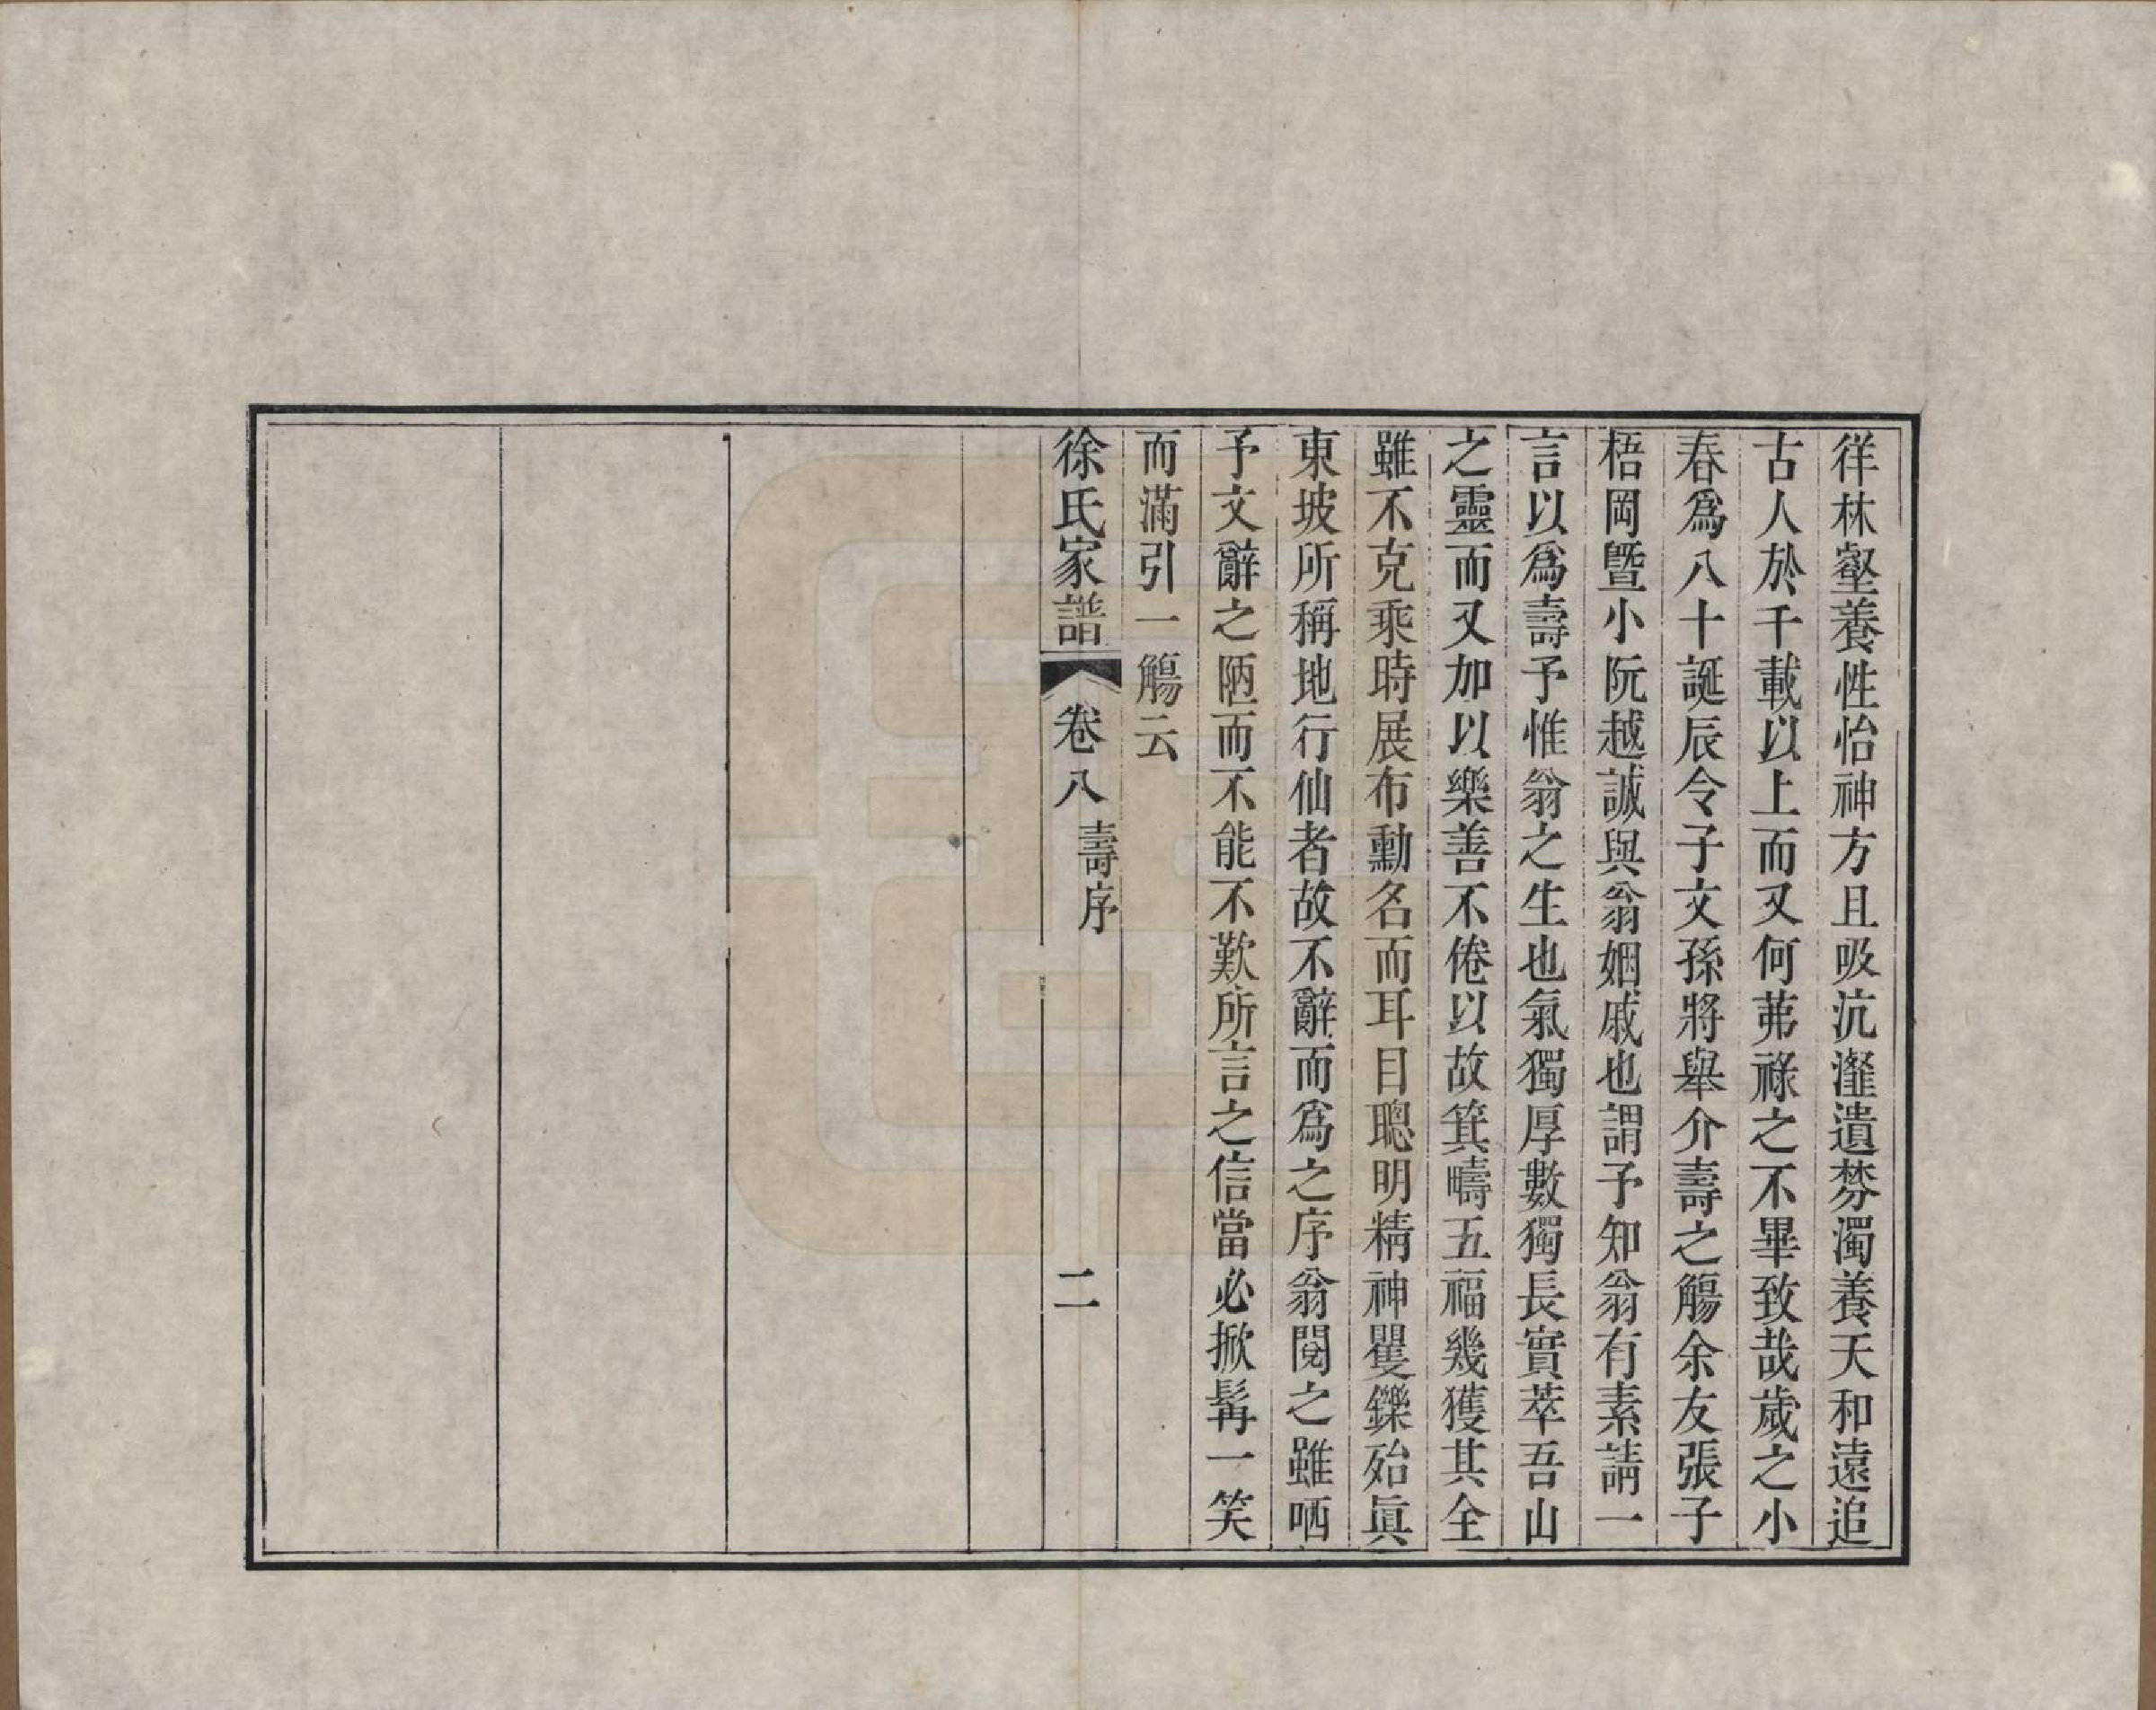 徉林壑養性怡神方且吸沆瀣遺棼濁養天和遠追
古人於千載以上而又何茀祿之不畢致哉歲之小
春爲八十誕辰令子文孫將舉介壽之觴余友張子
梧岡曁小阮越誠與翁姻戚也謂予知翁有素請一
言以爲壽予惟翁之生也氣獨厚數獨長實萃吾山
之靈而又加以樂善不倦以故箕疇五福幾獲其全
雖不克乘時展布勳名而耳目聰明精神矍鑠殆眞
東坡所稱地行仙者故不辭而爲之序翁閱之雖哂
予文辭之陋而不能不歎所言之信當必掀髯一笑
而滿引一觴云
徐氏家譜 卷八 壽序 二